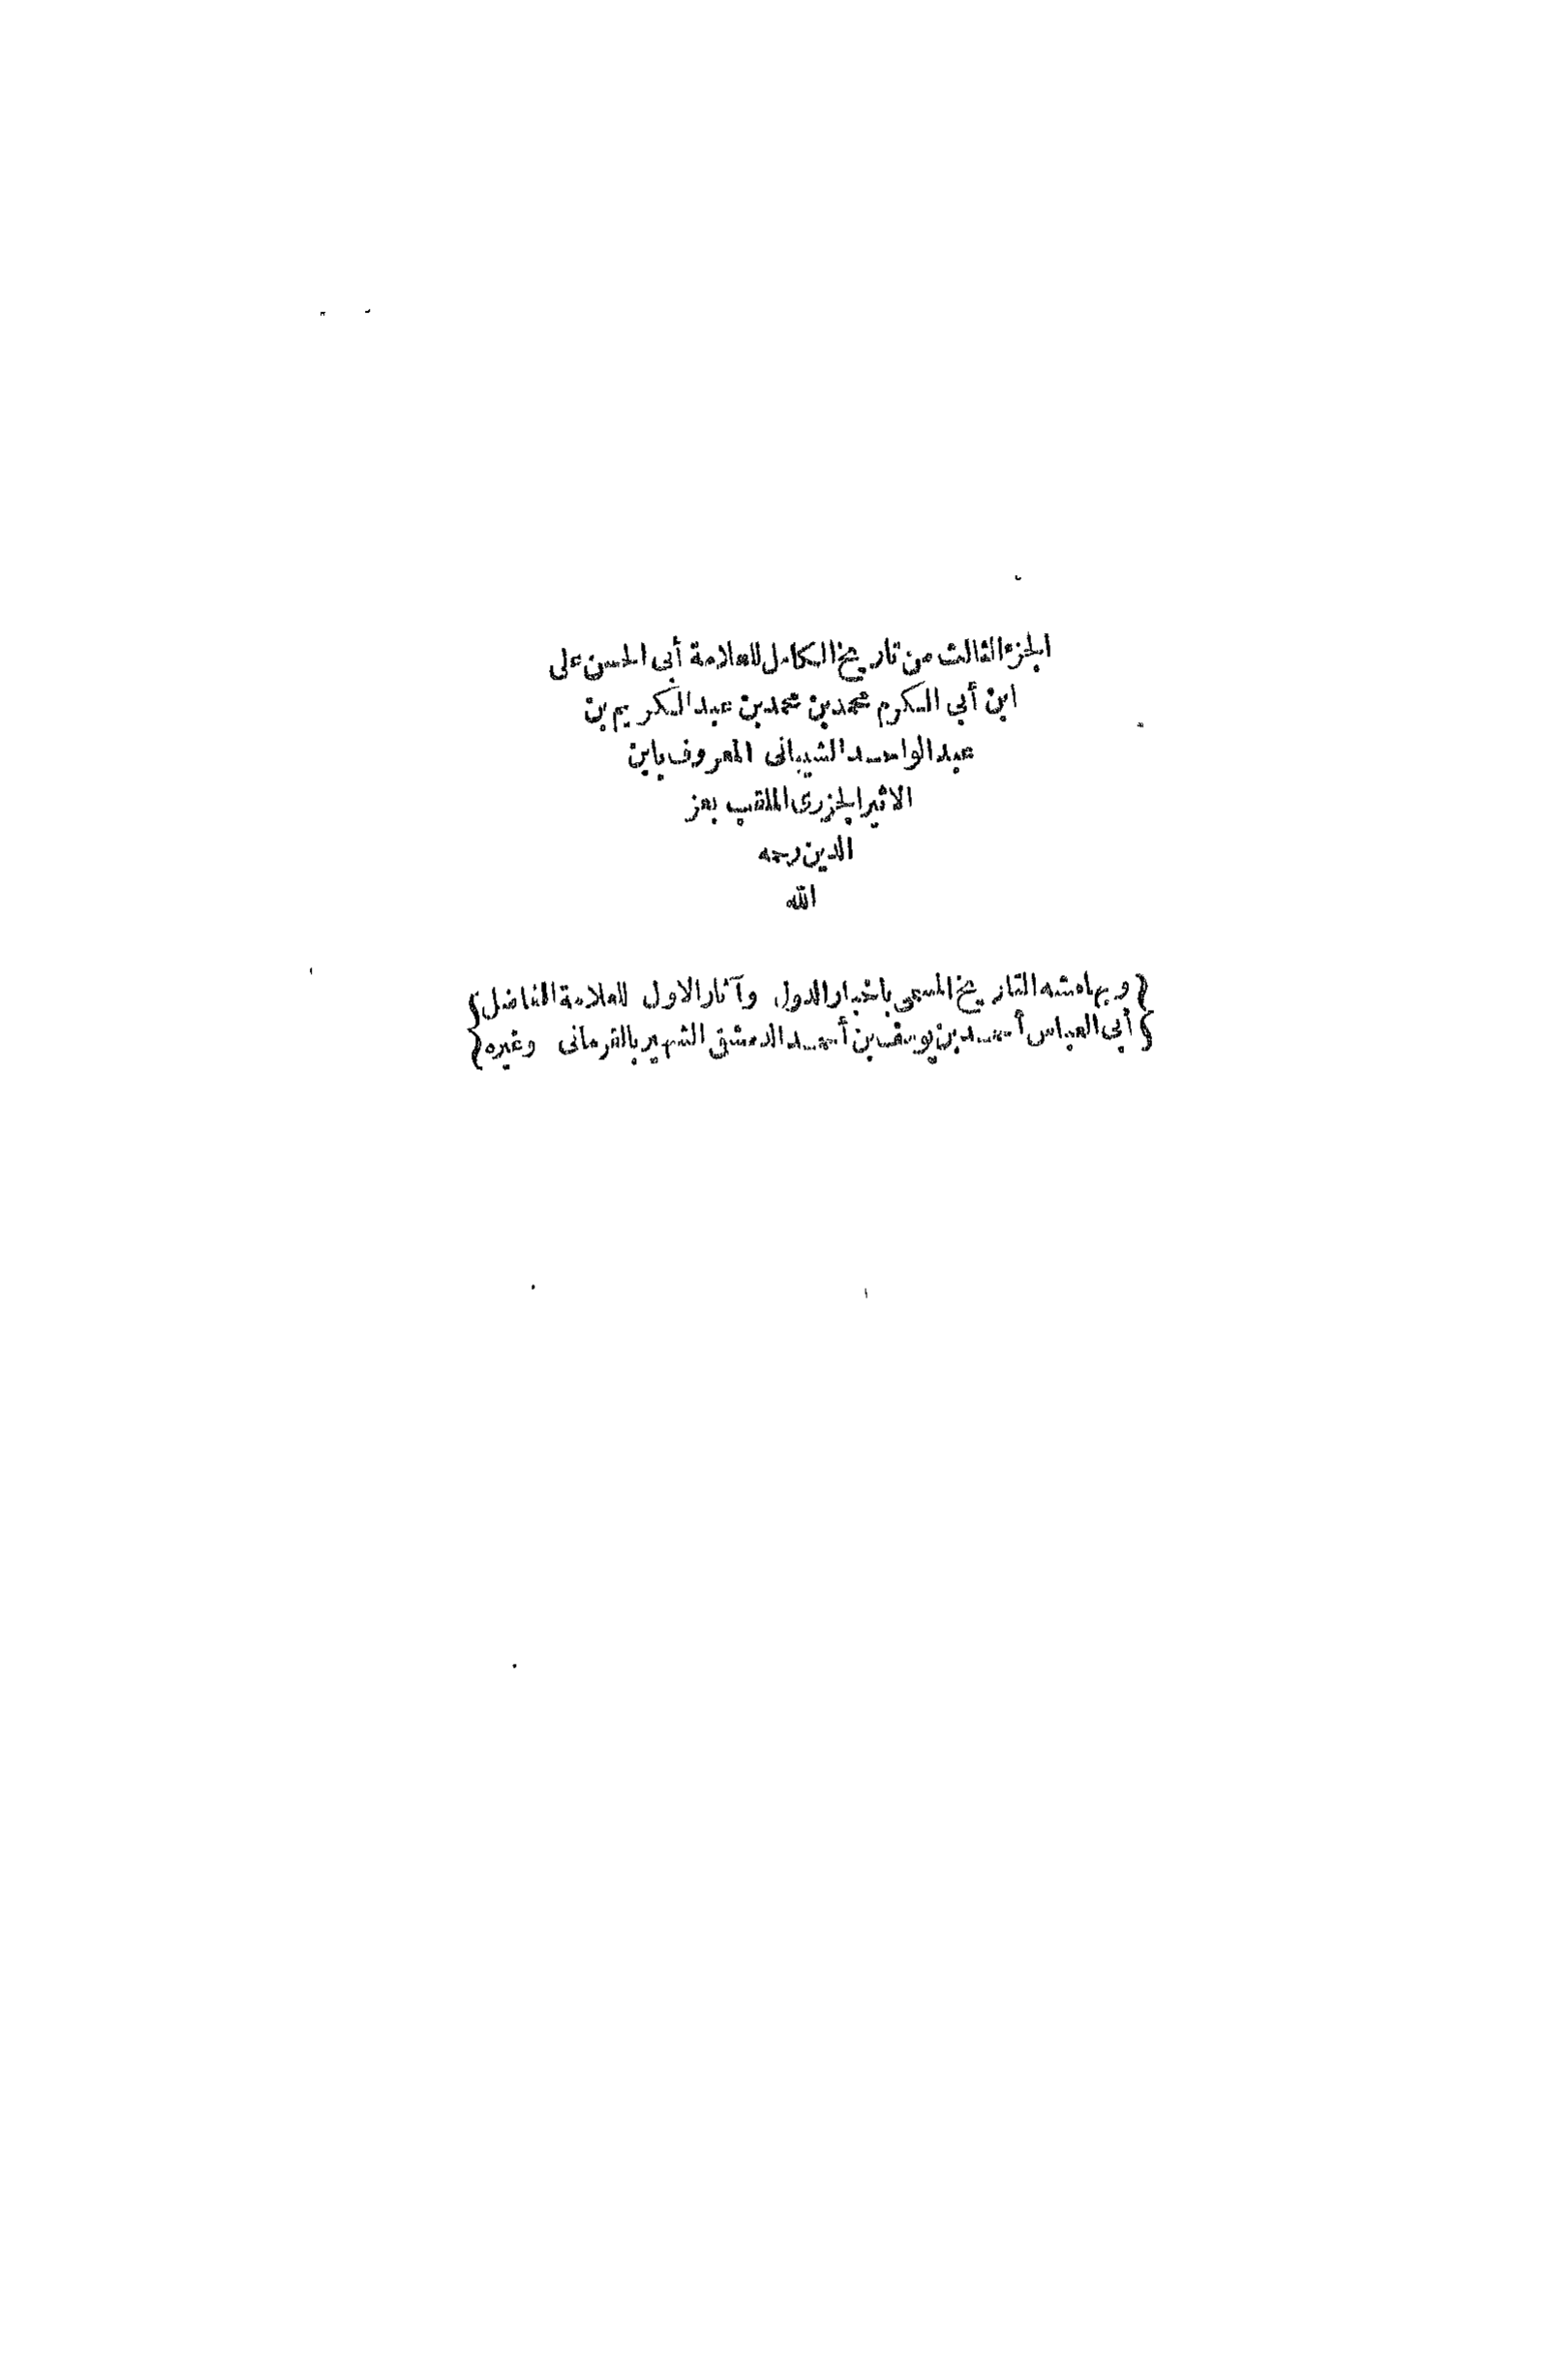 الجزء الثالث من تاريخ الكامل للعلامة أبى الحسن على
ابن أبي الكرم محمد بن محمد بن عبد الكريم بن
عبد الواحد الشيبانى المعروف بابن
الاثير الجزرى الملقب بعز
الدين رحمه
الله
{ وبهامشه التاريخ المسمى باخبار الدول وآثار الاول للعلامة الفاضل }
{ أبى العباس أحمد بن يوسف بن أحمد الدمشقى الشهير بالقرمانى وغيره }